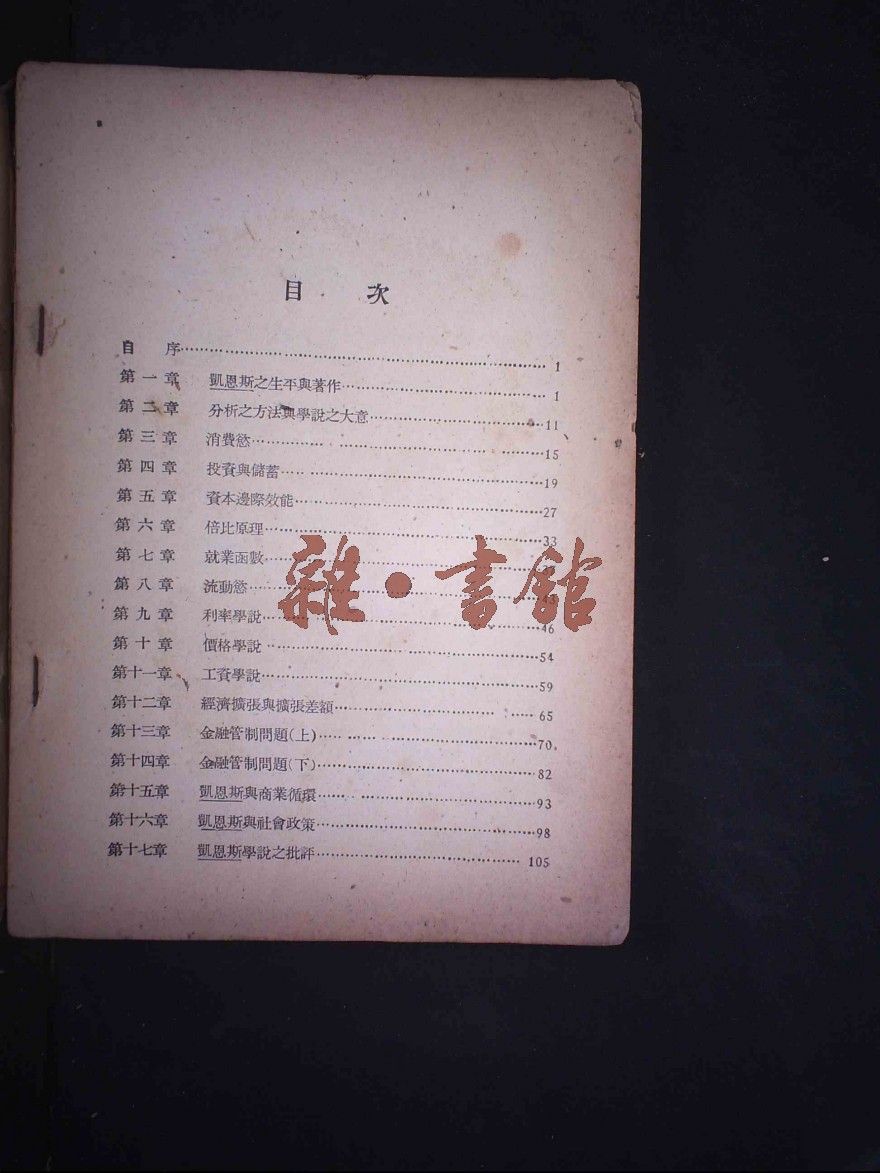 目 次
自 序 1
第一章 凱恩斯之生平與著作 1
第二章 分析之方法與學説之大意 11
第三章 消費慾 15
第四章 投資與儲蓄 19
第五章 資本邊際效能 27
第六章 倍比原理 33
第七章 就業函數
第八章 流動慾
第九章 利率學説 46
第十章 價格學説 54
第十一章 工資學説 59
第十二章 經濟擴張與擴張差額 65
第十三章 金融管制問題(上) 70
第十四章 金融管制問題(下) 82
第十五章 凱恩斯與商業循環 93
第十六章 凱恩斯與社會政策 98
第十七章 凱恩斯學説之批評 105
雜·書館